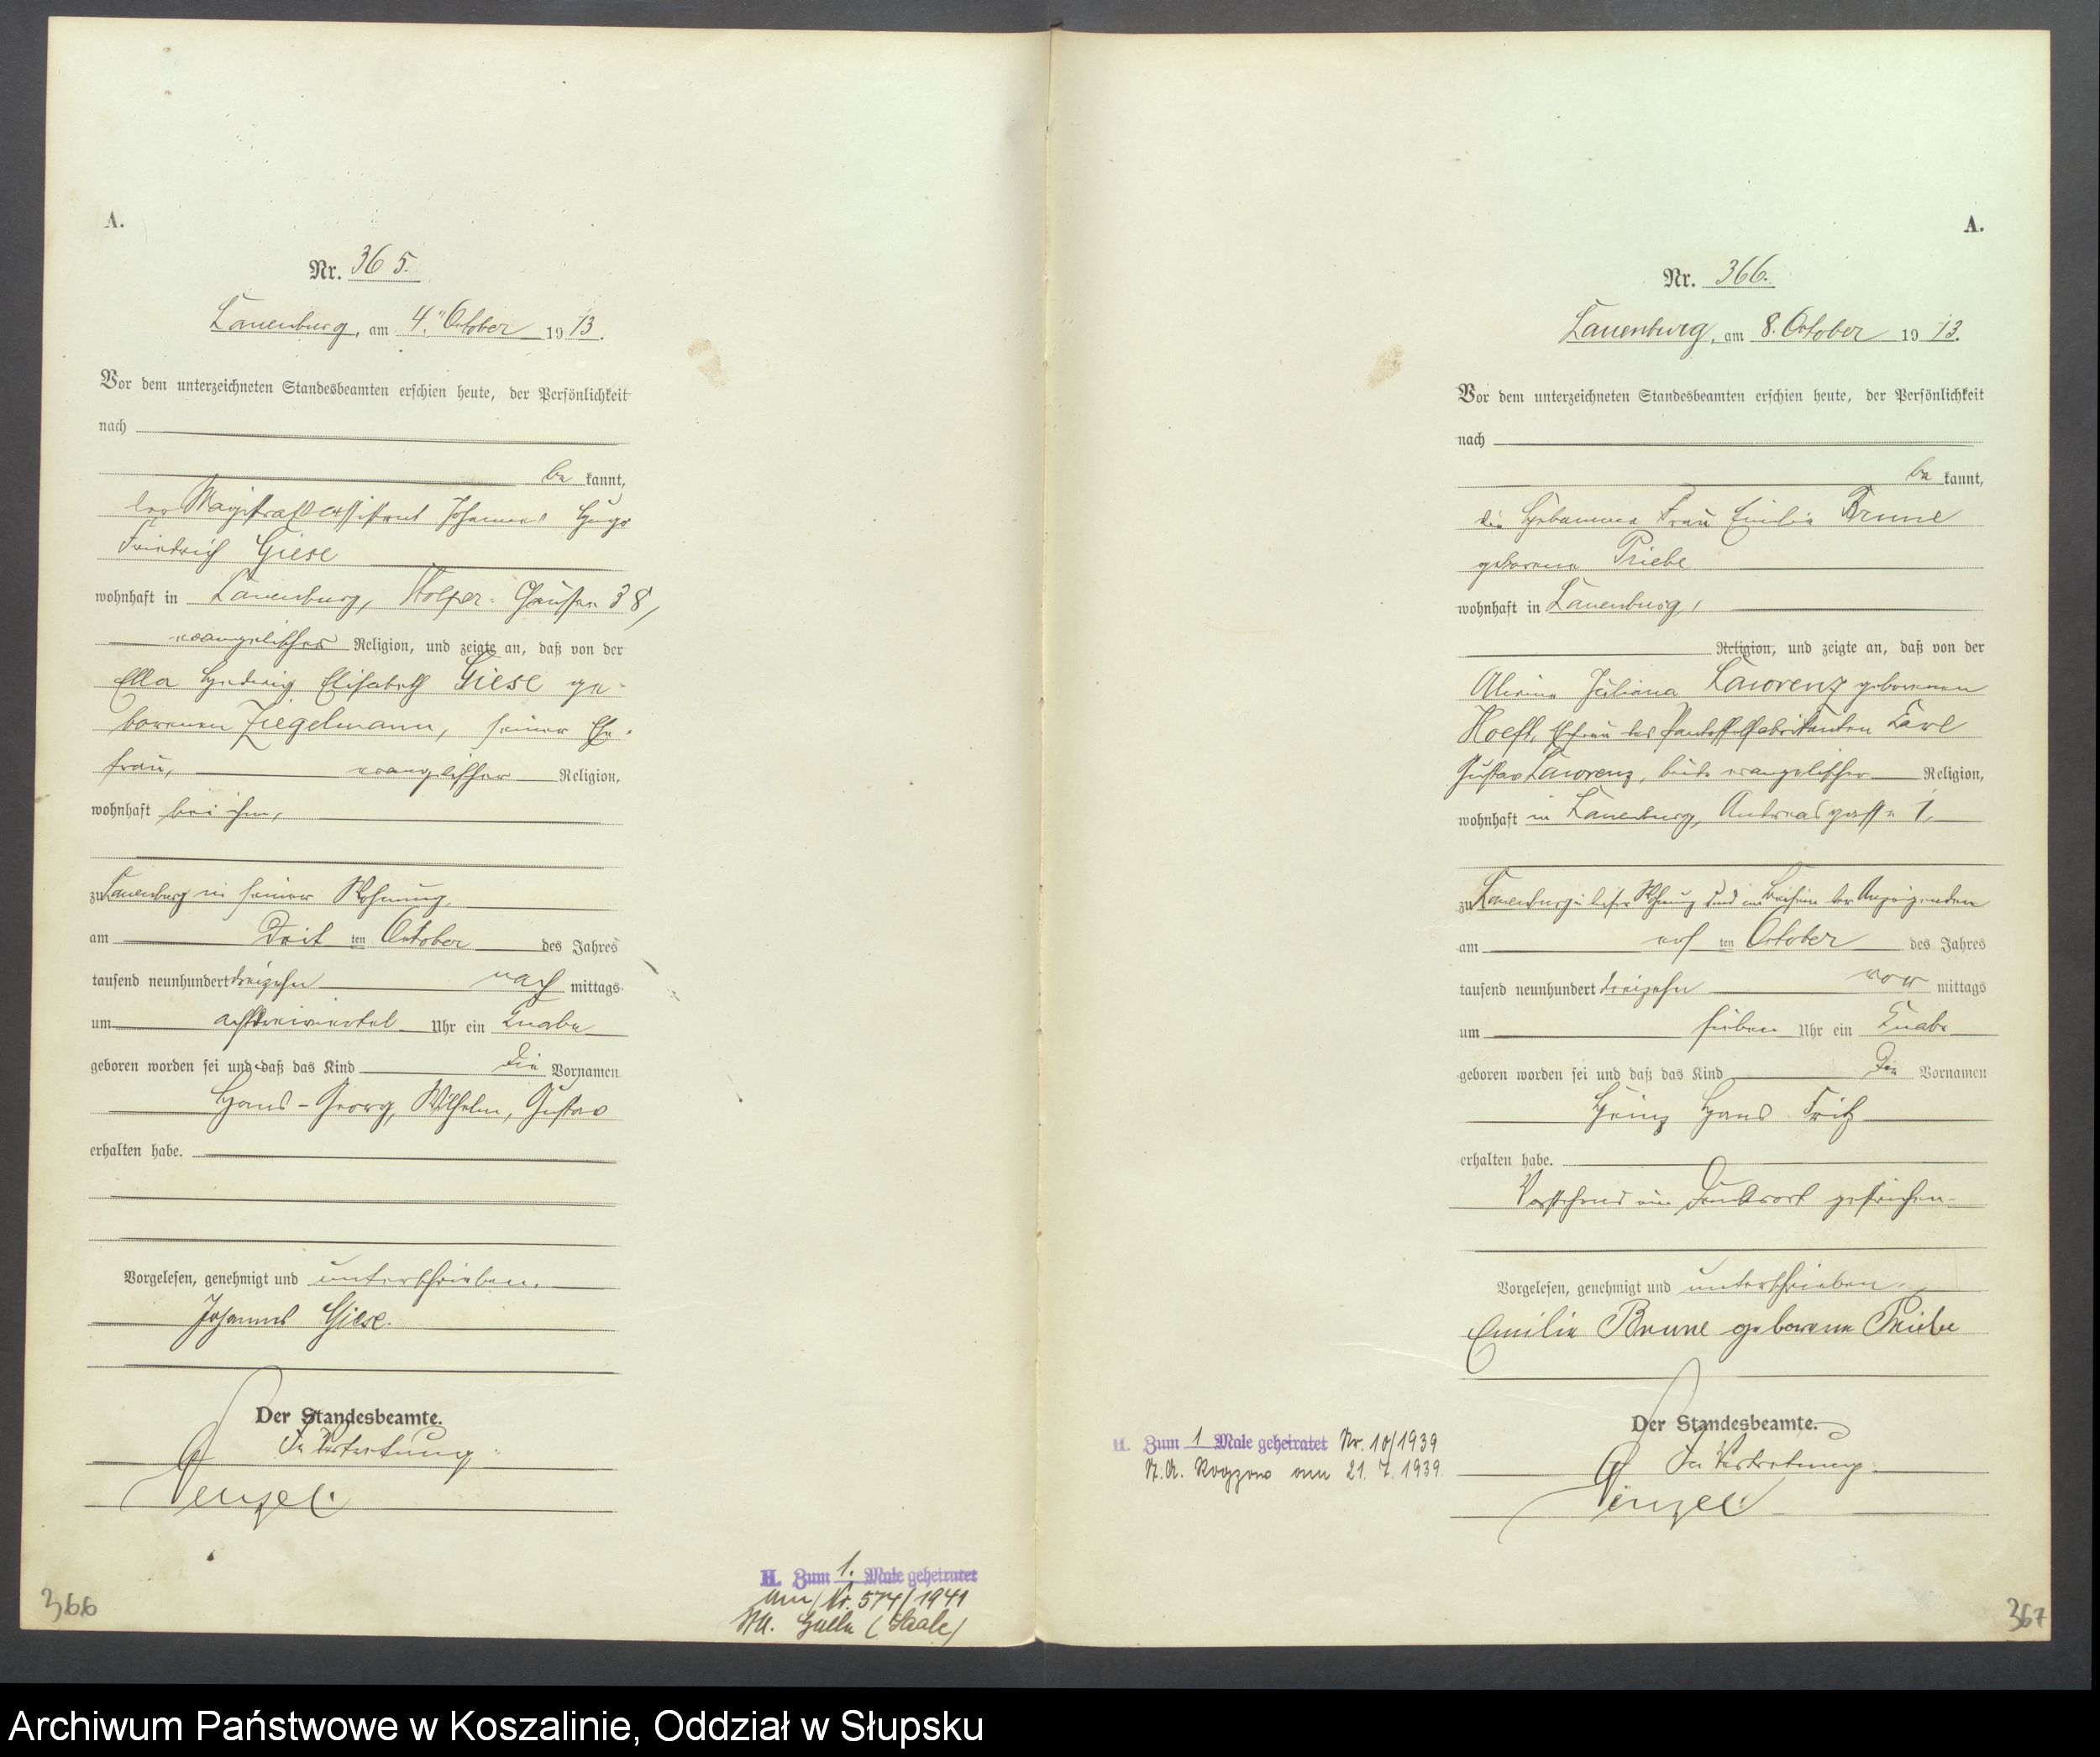 A.
Nr. 365.
Lauenburg, am 4. October 1913.
Vor dem unterzeichneten Standesbeamten erschien heute, der Persönlichkeit
nach
be kannt,
der Magistratsassistent Johannes Hugo
Friedrich Giese
wohnhaft in Lauenburg, Stolper-Chaussee 38,
evangelischer Religion, und zeigte an, daß von der
Ella Hedwig Elisabeth Giese ge-
borenen Ziegelmann, seiner Ehe-
frau, evangelischer Religion,
wohnhaft bei ihm,
zu Lauenburg in seiner Wohnung,
am Dritten October des Jahres
tausend neunhundert dreizehn nach mittags
um achtdreiviertel Uhr ein Knabe
geboren worden sei und daß das Kind die Vornamen
Hans-Georg, Wilhelm, Gustav
erhalten habe.
Vorgelesen, genehmigt und unterschrieben.
Johannes Giese.
Der Standesbeamte.
In Vertretung.
H. Zum 1. Male geheiratet
Nr. 574/1941
StA. Halle (Saale)
366
A.
Nr. 366.
Lauenburg, am 8. October 1913.
Vor dem unterzeichneten Standesbeamten erschien heute, der Persönlichkeit
nach
be kannt,
die Hebamme Frau Emilie Brune
geborene Priebe
wohnhaft in Lauenburg,
Religion, und zeigte an, daß von der
Juliana Lawrenz geborenen
Hoeft, Ehefrau des Pantoffelfabrikanten Karl
Gustav Lawrenz, beide evangelischer Religion,
wohnhaft in Lauenburg, Andreasgasse 1,
zu Lauenburg in dieser Wohnung und im Beisein der Anzeigenden
am achten October des Jahres
tausend neunhundert dreizehn vor mittags
um sieben Uhr ein Knabe
geboren worden sei und daß das Kind die Vornamen
Heinz Hans Fritz
erhalten habe.
Vorstehend ein Druckwort gestrichen.
Vorgelesen, genehmigt und unterschrieben.
Emilie Brune geborene Priebe
Der Standesbeamte.
In Vertretung.
H. Zum 1 Male geheiratet Nr. 10/1939
am 21. 7. 1939.
367
Archiwum Państwowe w Koszalinie, Oddział w Słupsku